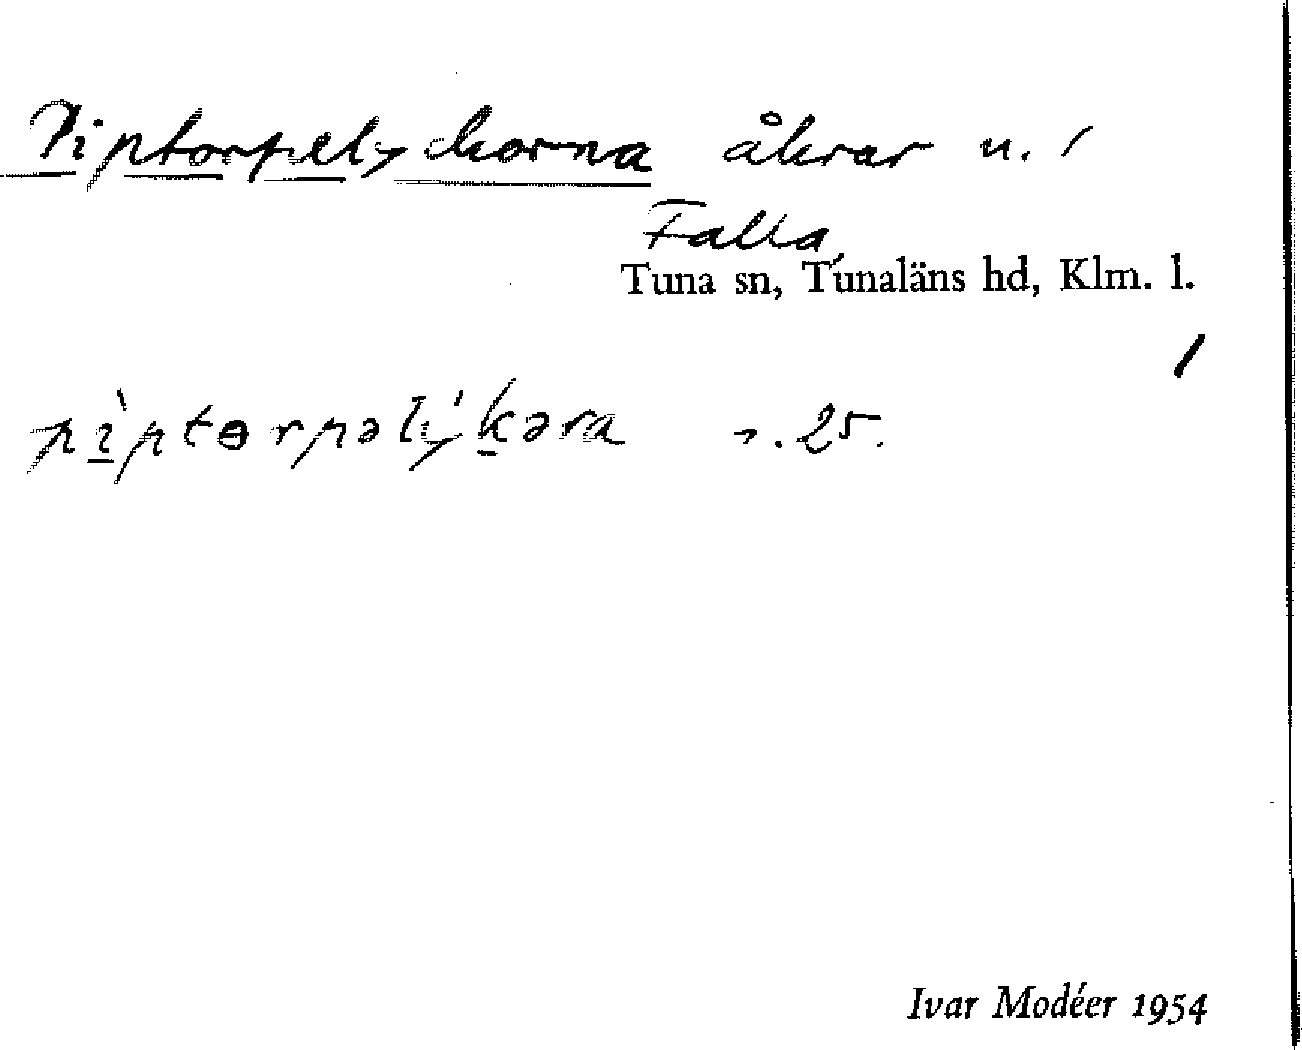 Piptorpelyckorna åkrar n. /
Falla,
Tuna sn, Tunaläns hd, Klm. l.
/
25.
Ivar Modéer 1954